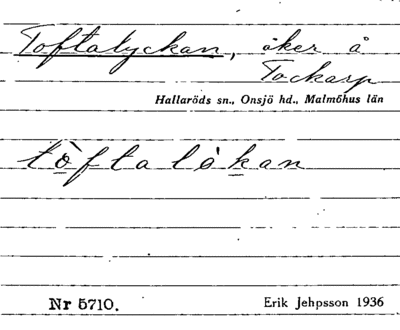 Toftalyckan, åker å
Tockarp
Hallaröds sn., Onsjö hd., Malmöhus län
tò̱ftaló̱kan
Nr 5710.
Erik Jehpsson 1936